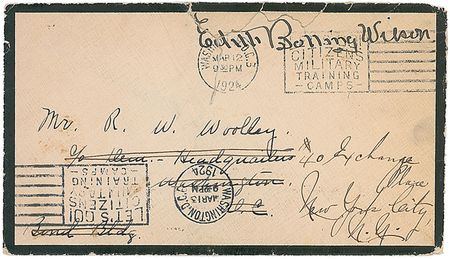 Edith Bolling Wilson
WASHINGTON, D.C. 3
MAR 12
9 30 PM
1924
CITIZENS
MILITARY
TRAINING
CAMPS
Mr. R. W. Woolley
c/o Dem. Headquarters
60 Exchange
Place
Washington,
D.C.
New York City
N.Y.
Bond Bldg.
WASHINGTON, D.C.
MAR 13
PM
1924
LET'S GO!
CITIZENS
TRAINING
CAMPS